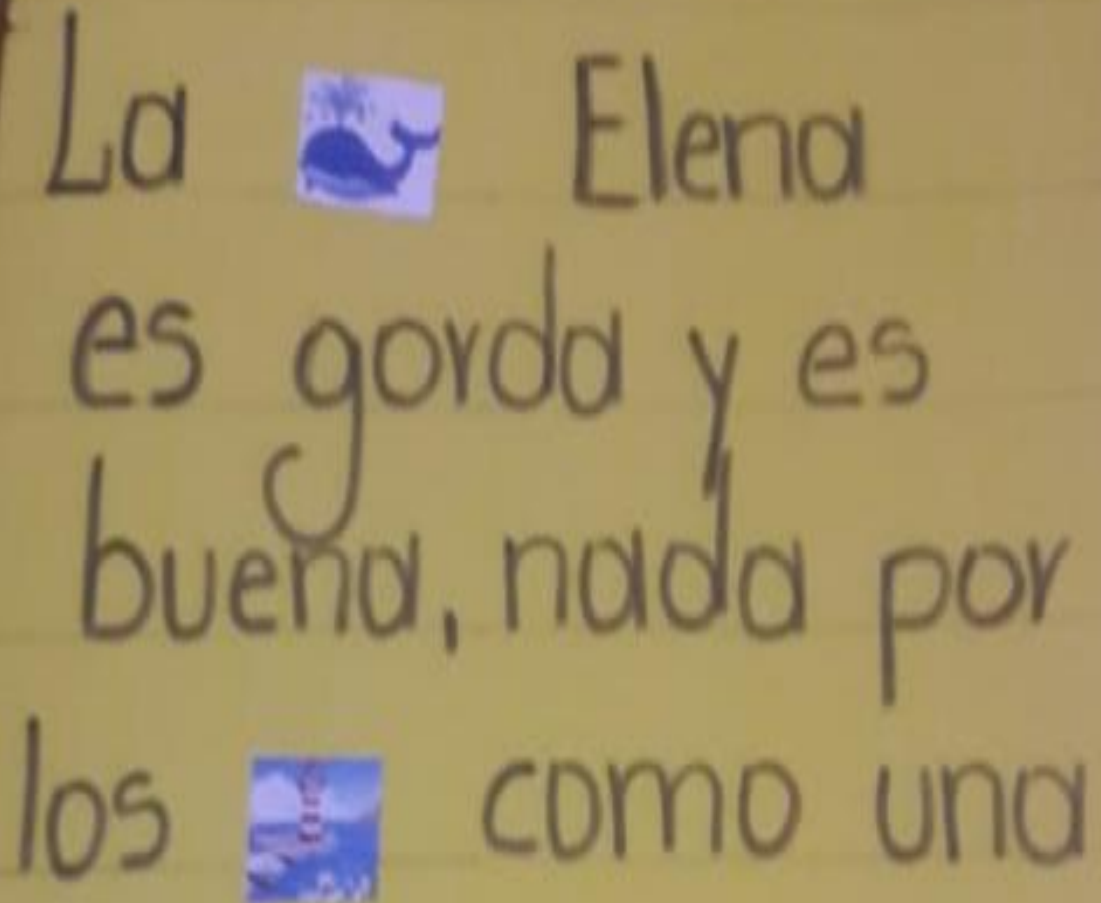 La Elena
es gorda y es
buena, nada por
los como una